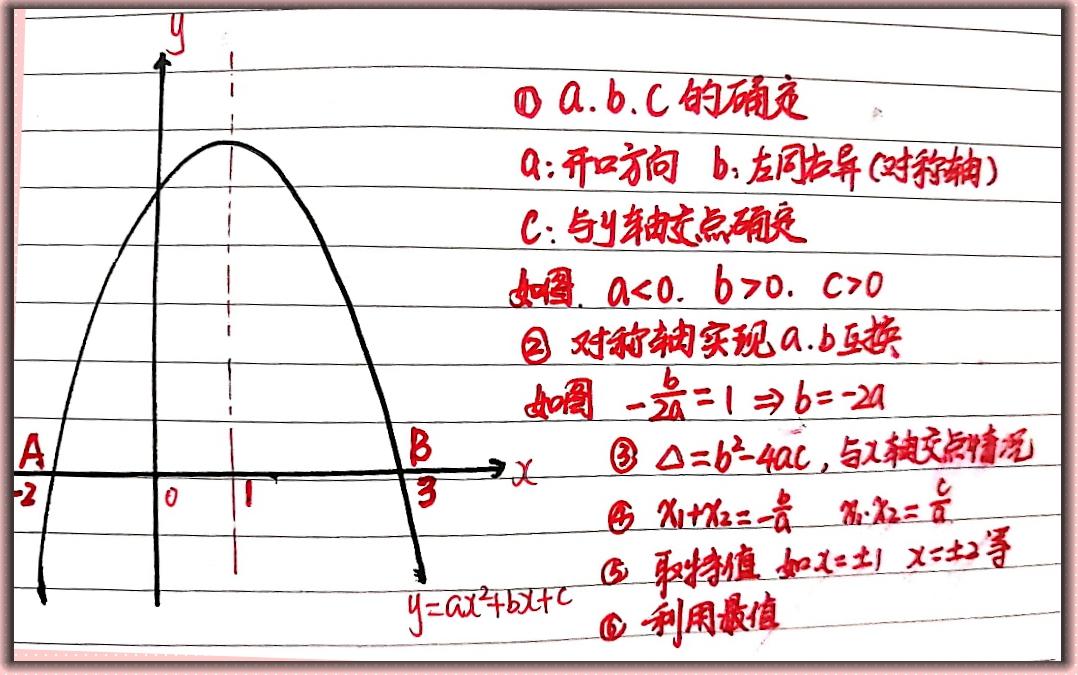 y
① a.b.c的确定
a:开口方向 b:左同右异(对称轴)
C:与y轴交点确定
如图. a<0. b>0. c>0
② 对称轴实现a.b互换
如图 -b/2a=1⇒b=-2a
③ Δ=b²-4ac,与x轴交点情况
④ x₁+x₂=-b/a x₁·x₂=c/a
⑤ 取特值 如x=±1 x=±2等
⑥ 利用最值
A B
-2 0 1 3 x
y=ax²+bx+c